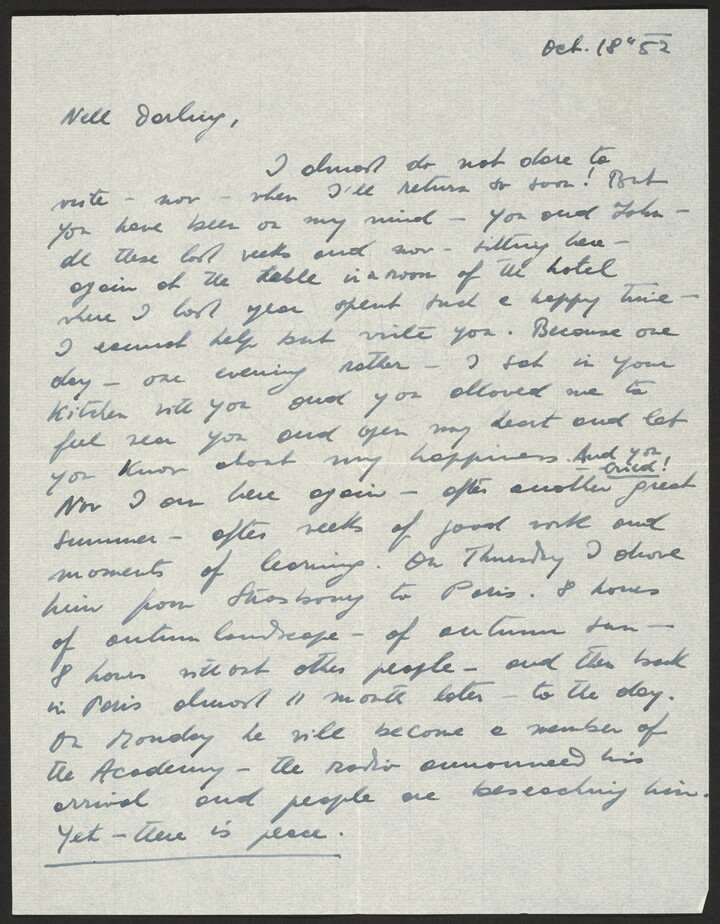 Oct. 18" 52
Nell Darling,
I almost do not dare to
write - now - when I'll return so soon! But
you have been on my mind - you and John -
all these last weeks and now - sitting here -
again at the table in a room of the hotel
where I last year spent such a happy time -
I cannot help but write you. Because one
day - one evening rather - I sat in your
Kitchen with you and you allowed me to
feel near you and open my heart and let
you know about my happiness. And you
cried!
Now I am here again - after another great
summer - after weeks of good work and
moments of learning. On Thursday I drove
him from Strasbourg to Paris. 8 hours
of autumn landscape - of autumn sun -
8 hours without other people - and then back
in Paris almost 11 month later - to the day.
On Monday he will become a member of
the Academy - the radio announced his
arrival and people are beseaching him.
Yet - there is peace.